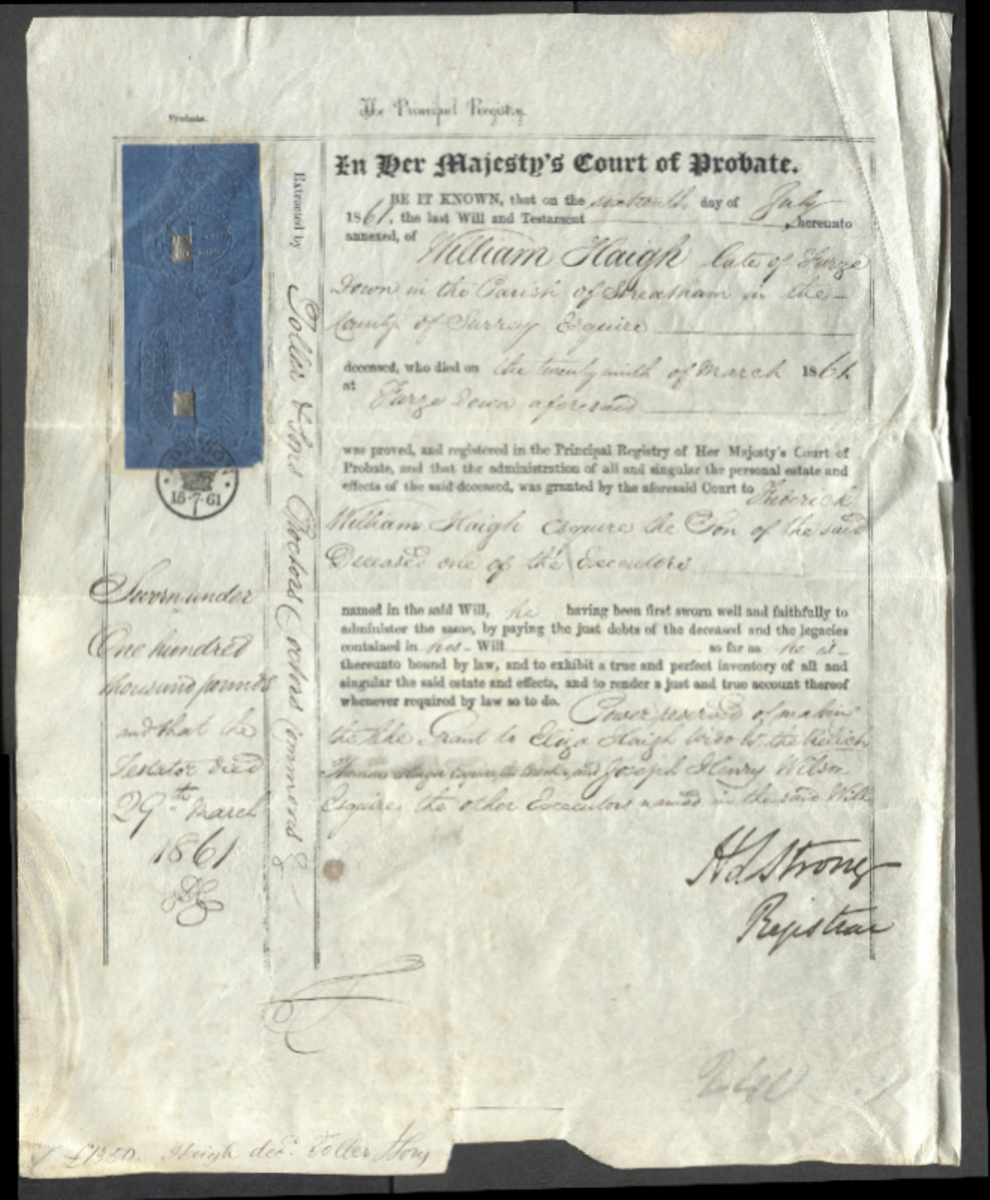 Probate.
The Principal Registry.
In Her Majesty's Court of Probate.
BE IT KNOWN, that on the sixteenth day of July
1861, the last Will and Testament hereunto
annexed, of
William Haigh late of Furze
Down in the Parish of Streatham in the
County of Surrey Esquire
deceased, who died on the twenty ninth of March 1861
at
Furze Down aforesaid
was proved, and registered in the Principal Registry of Her Majesty's Court of
Probate, and that the administration of all and singular the personal estate and
effects of the said deceased, was granted by the aforesaid Court to Frederick
William Haigh Esquire the Son of the said
Deceased one of the Executors
named in the said Will, he having been first sworn well and faithfully to
administer the same, by paying the just debts of the deceased and the legacies
contained in his Will so far as he is
thereunto bound by law, and to exhibit a true and perfect inventory of all and
singular the said estate and effects, and to render a just and true account thereof
whenever required by law so to do. Power reserved of making
the like Grant to Eliza Haigh Widow the Relict
Thomas Haigh Esquire the Brother and Joseph Henry Wilson
Esquire the other Executors named in the said Will
H L Strong
Registrar
Extracted by
Toller & Sons Proctors Doctors Commons
LONDON
16·7·61
Sworn under
One hundred
thousand pounds
and that the
Testator died
29th March
1861
£1350. Haigh decd. Toller & Sons